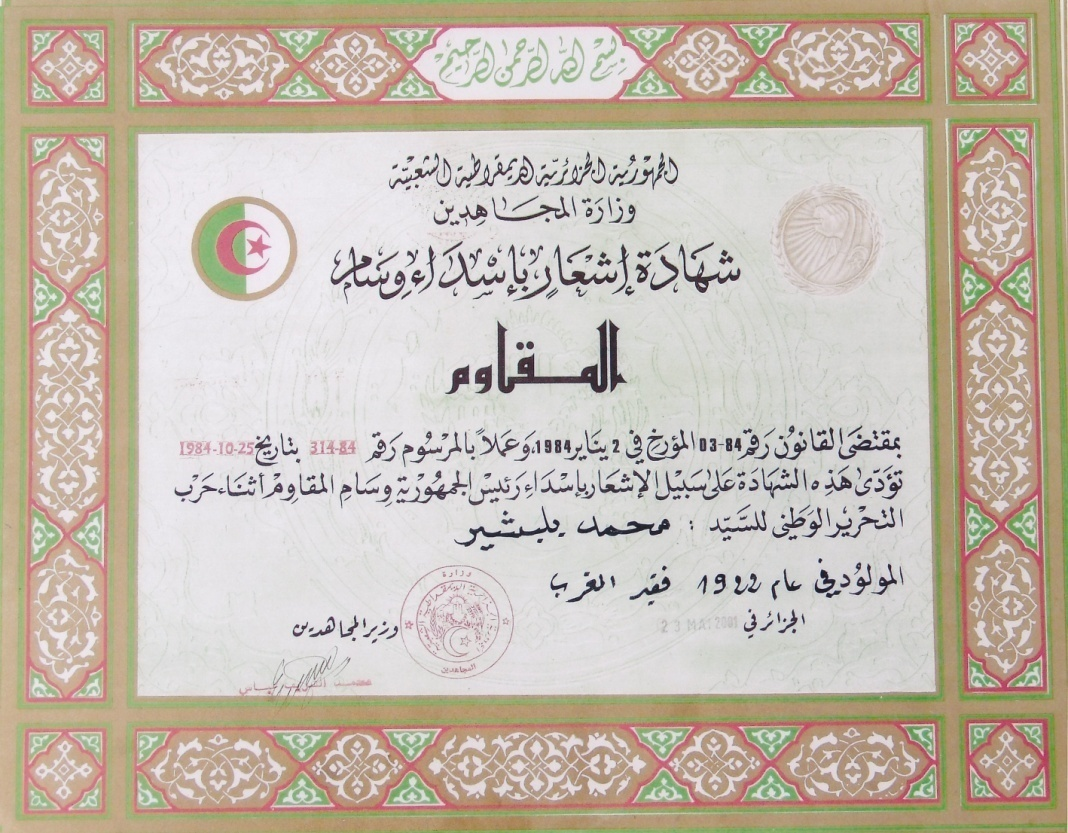 بسم الله الرحمن الرحيم
الجمهورية الجزائرية الديمقراطية الشعبية
وزارة المجاهدين
شهادة إشعار بإسداء وسام
المقاوم
بمقتضى القانون رقم 84-03 المؤرخ في 2 يناير 1984، وعملاً بالمرسوم رقم 84-314 بتاريخ 25-10-1984
تؤدى هذه الشهادة على سبيل الإشعار بإسداء رئيس الجمهورية وسام المقاوم أثناء حرب
التحرير الوطني للسيد : محمد بلبشير
المولود في عام 1922 فقيد المغرب
الجزائر في 23 MAI 2001
وزير المجاهدين
وزارة
المجاهدين